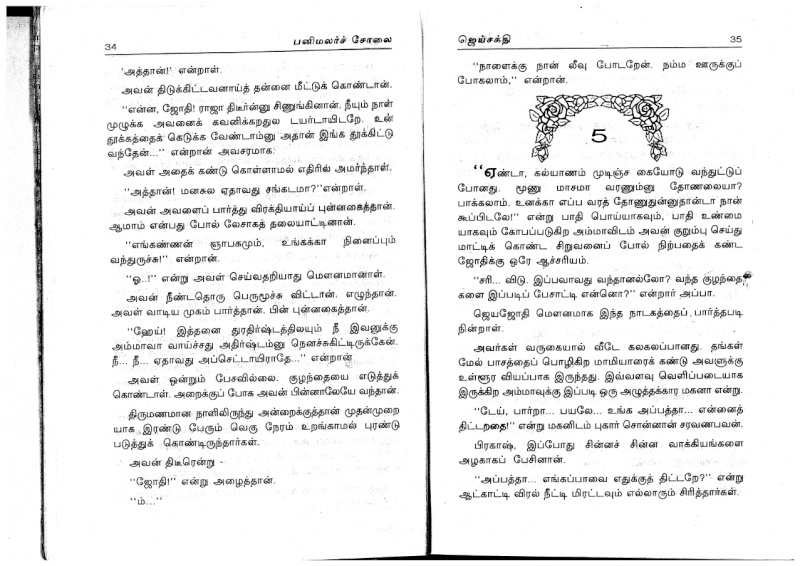 34
பனிமலர்ச் சோலை
'அத்தான்!' என்றாள்.
அவன் திடுக்கிட்டவனாய்த் தன்னை மீட்டுக் கொண்டான்.
''என்ன, ஜோதி! ராஜா திடீர்னு சிணுங்கினான். நீயும் நாள்
முழுக்க அவனைக் கவனிக்கறதுல டயர்டாயிடறே. உன்
தூக்கத்தைக் கெடுக்க வேண்டாம்னு அதான் இங்க தூக்கிட்டு
வந்தேன்...'' என்றான் அவசரமாக.
அவள் அதைக் கண்டு கொள்ளாமல் எதிரில் அமர்ந்தாள்.
''அத்தான்! மனசுல ஏதாவது சங்கடமா?''என்றாள்.
அவன் அவளைப் பார்த்து விரக்தியாய்ப் புன்னகைத்தான்.
ஆமாம் என்பது போல் லேசாகத் தலையாட்டினான்.
''எங்கண்ணன் ஞாபகமும், உங்கக்கா நினைப்பும்
வந்துருச்சு!'' என்றான்.
''ஓ..!'' என்று அவள் செய்வதறியாது மௌனமானாள்.
அவன் நீண்டதொரு பெருமூச்சு விட்டான். எழுந்தான்.
அவள் வாடிய முகம் பார்த்தான். பின் புன்னகைத்தான்.
''ஹேய்! இத்தனை துரதிர்ஷ்டத்திலயும் நீ இவனுக்கு
அம்மாவா வாய்ச்சது அதிர்ஷ்டம்னு நெனச்சுகிட்டிருக்கேன்.
நீ... நீ... ஏதாவது அப்செட்டாயிராதே...'' என்றான்
அவள் ஒன்றும் பேசவில்லை. குழந்தையை எடுத்துக்
கொண்டாள். அறைக்குப் போக அவன் பின்னாலேயே வந்தான்.
திருமணமான நாளிலிருந்து அன்றைக்குத்தான் முதன்முறை
யாக இரண்டு பேரும் வெகு நேரம் உறங்காமல் புரண்டு
படுத்துக் கொண்டிருந்தார்கள்.
அவன் திடீரென்று -
''ஜோதி!'' என்று அழைத்தான்.
''ம்...''
ஜெய்சக்தி
35
''நாளைக்கு நான் லீவு போடறேன். நம்ம ஊருக்குப்
போகலாம்,'' என்றான்.
5
''ஏண்டா, கல்யாணம் முடிஞ்ச கையோடு வந்துட்டுப்
போனது. மூணு மாசமா வரணும்னு தோணலையா?
பாக்கலாம். உனக்கா எப்ப வரத் தோணுதுன்னுதான்டா நான்
கூப்பிடலே!'' என்று பாதி பொய்யாகவும், பாதி உண்மை
யாகவும் கோபப்படுகிற அம்மாவிடம் அவன் குறும்பு செய்து
மாட்டிக் கொண்ட சிறுவனைப் போல் நிற்பதைக் கண்ட
ஜோதிக்கு ஒரே ஆச்சரியம்.
''சரி... விடு. இப்பவாவது வந்தானல்லோ? வந்த குழந்தை
களை இப்படிப் பேசாட்டி என்னொ?'' என்றார் அப்பா.
ஜெயஜோதி மௌனமாக இந்த நாடகத்தைப் பார்த்தபடி
நின்றாள்.
அவர்கள் வருகையால் வீடே கலகலப்பானது. தங்கள்
மேல் பாசத்தைப் பொழிகிற மாமியாரைக் கண்டு அவளுக்கு
உள்ளூர வியப்பாக இருந்தது. இவ்வளவு வெளிப்படையாக
இருக்கிற அம்மாவுக்கு இப்படி ஒரு அழுத்தக்கார மகனா என்று.
''டேய், பார்றா... பயலே... உங்க அப்பத்தா... என்னைத்
திட்டறதை!'' என்று மகனிடம் புகார் சொன்னான் சரவணபவன்.
பிரகாஷ், இப்போது சின்னச் சின்ன வாக்கியங்களை
அழகாகப் பேசினான்.
''அப்பத்தா... எங்கப்பாவை எதுக்குத் திட்டறே?'' என்று
ஆட்காட்டி விரல் நீட்டி மிரட்டவும் எல்லாரும் சிரித்தார்கள்.